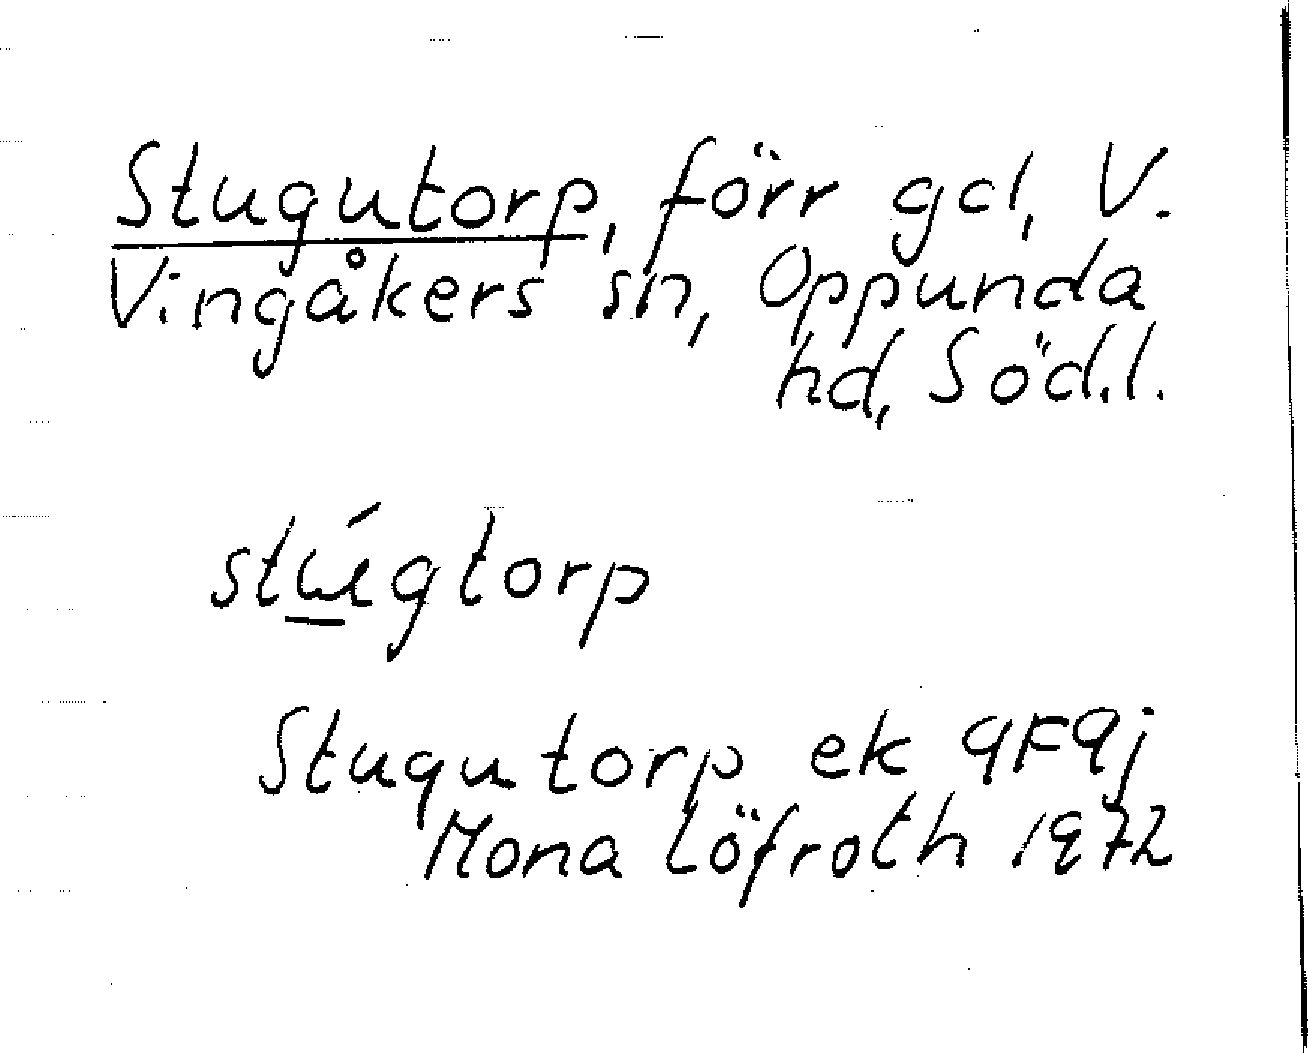 Stugutorp, förr gd, V.
Vingåkers sn, Oppunda
hd, Söd.l.
stú̲gtorp
Stugutorp ek 9F9j
Mona Löfroth 1972